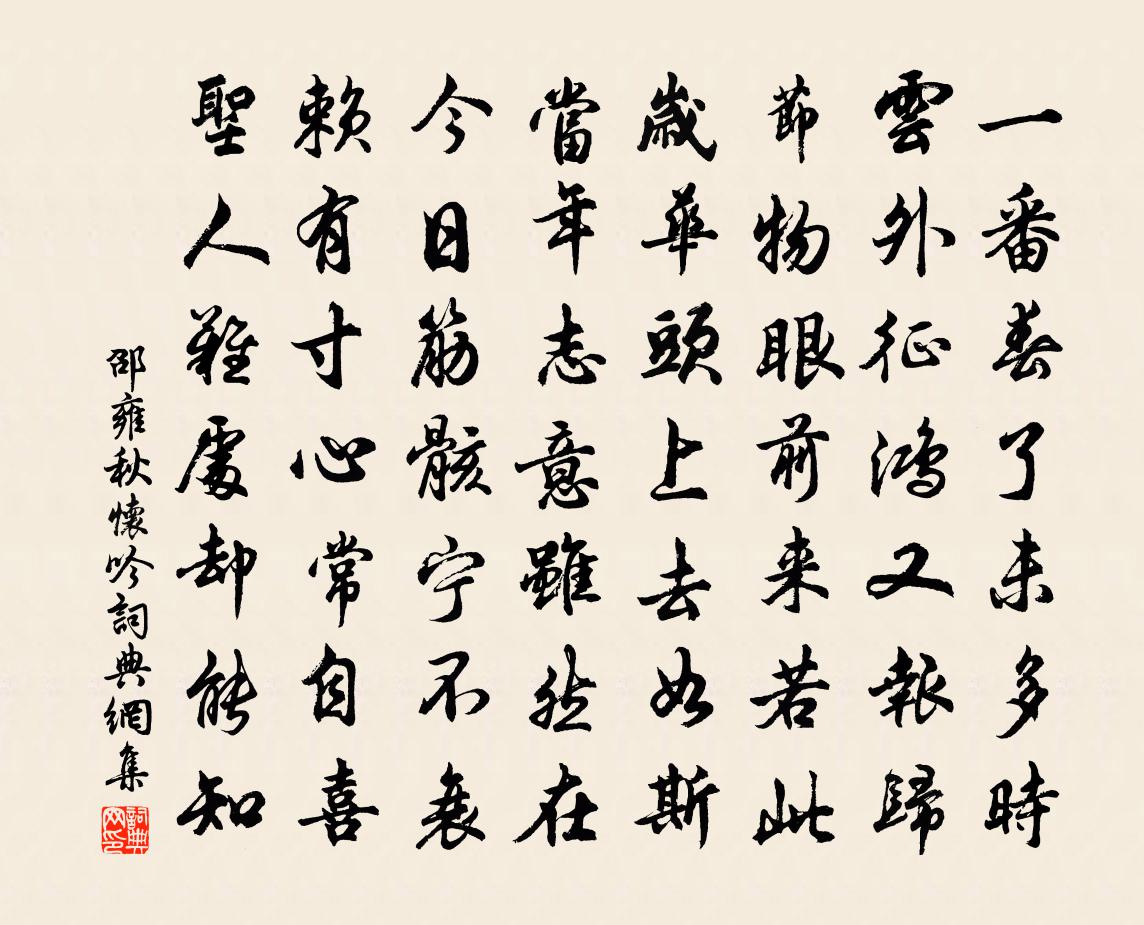 一番春了未多時
雲外征鴻又報歸
節物眼前来若此
歲華頭上去如斯
當年志意雖然在
今日筋骸宁不衰
賴有寸心常自喜
聖人難處却能知
邵雍秋懷吟詞典網集
詞典网印